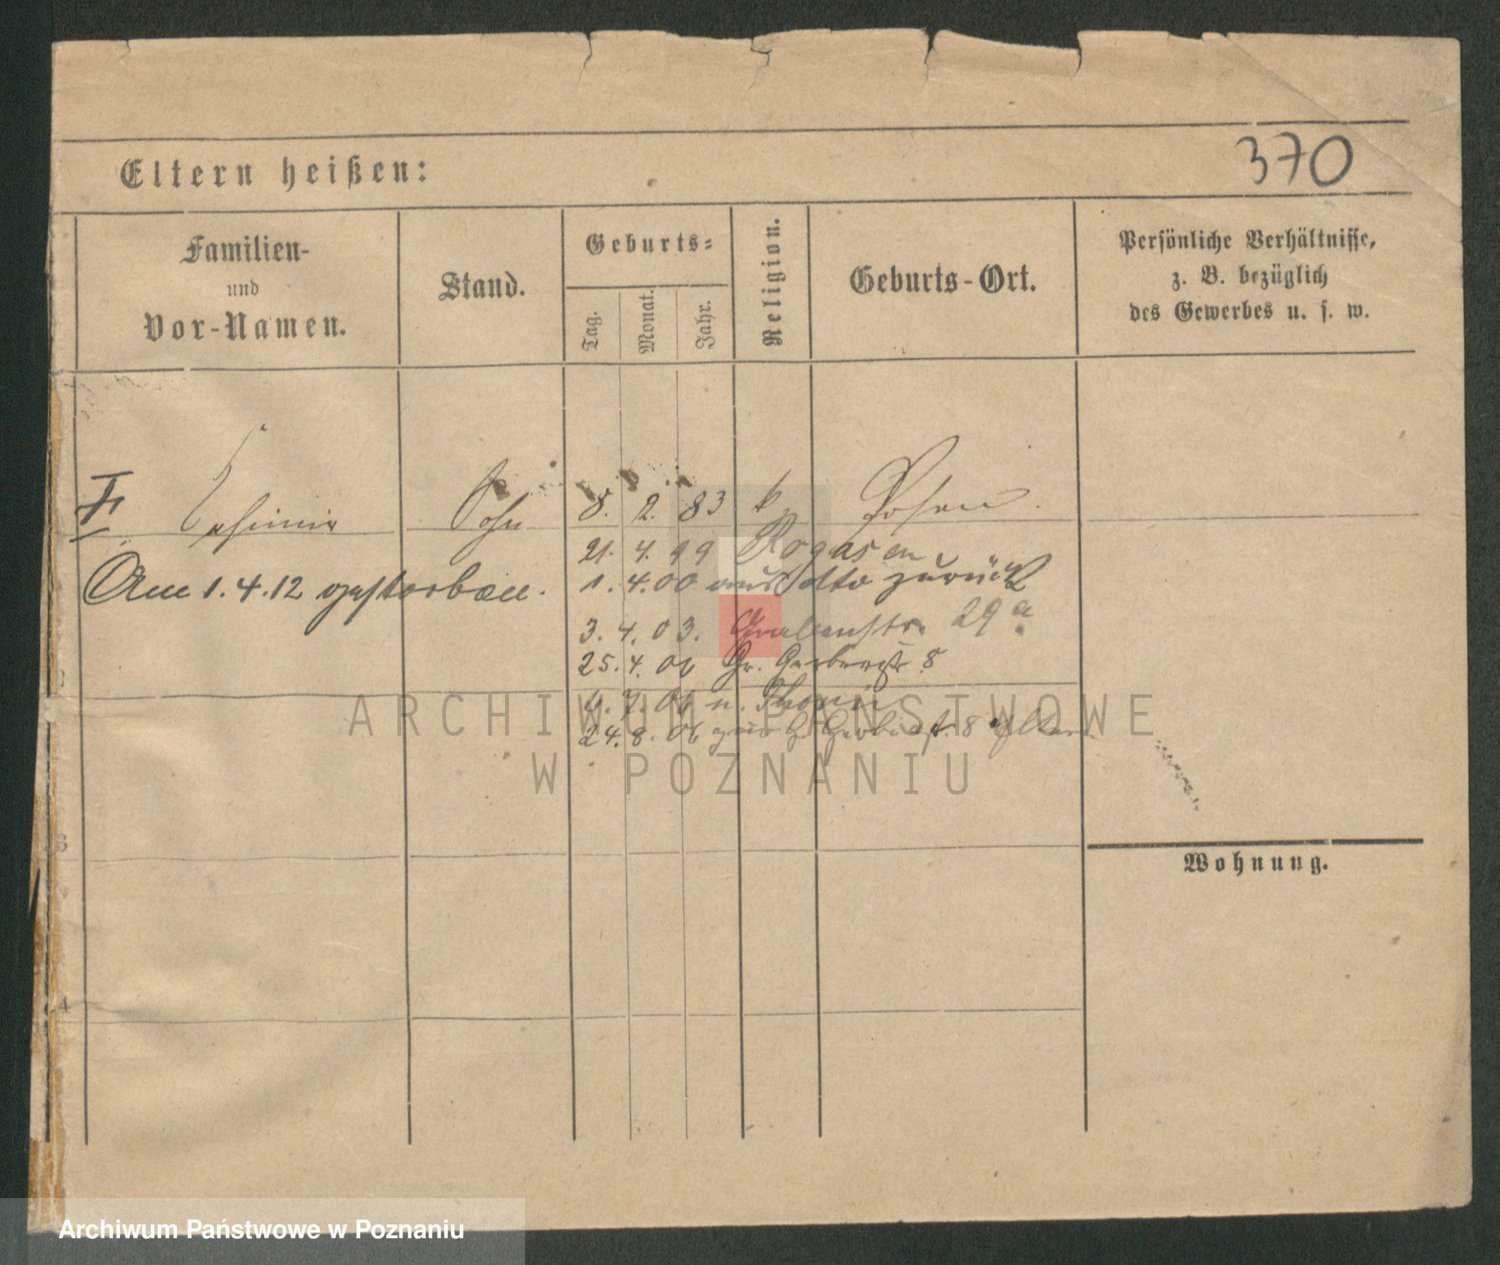 370
Eltern heißen:
Familien-
und
Vor-Namen.
Stand.
Geburts-
Tag.
Monat.
Jahr.
Religion.
Geburts-Ort.
Persönliche Verhältnisse,
z. B. bezüglich
des Gewerbes u. s. w.
Casimir Sohn 8. 2. 83 k Posen.
21. 4. 99 Rogasen
Am 1.4.12 gestorben.
1. 4. 00 aus dto zurück
3. 4. 03. Grabenstr. 29a
25. 4. 06 Gr. Gerberstr 8
4. 7. 06 n. Thorn
24. 8. 06 Gerberstr. 8 Eltern
3
4
Wohnung.
ARCHIWUM PAŃSTWOWE
W POZNANIU
Archiwum Państwowe w Poznaniu